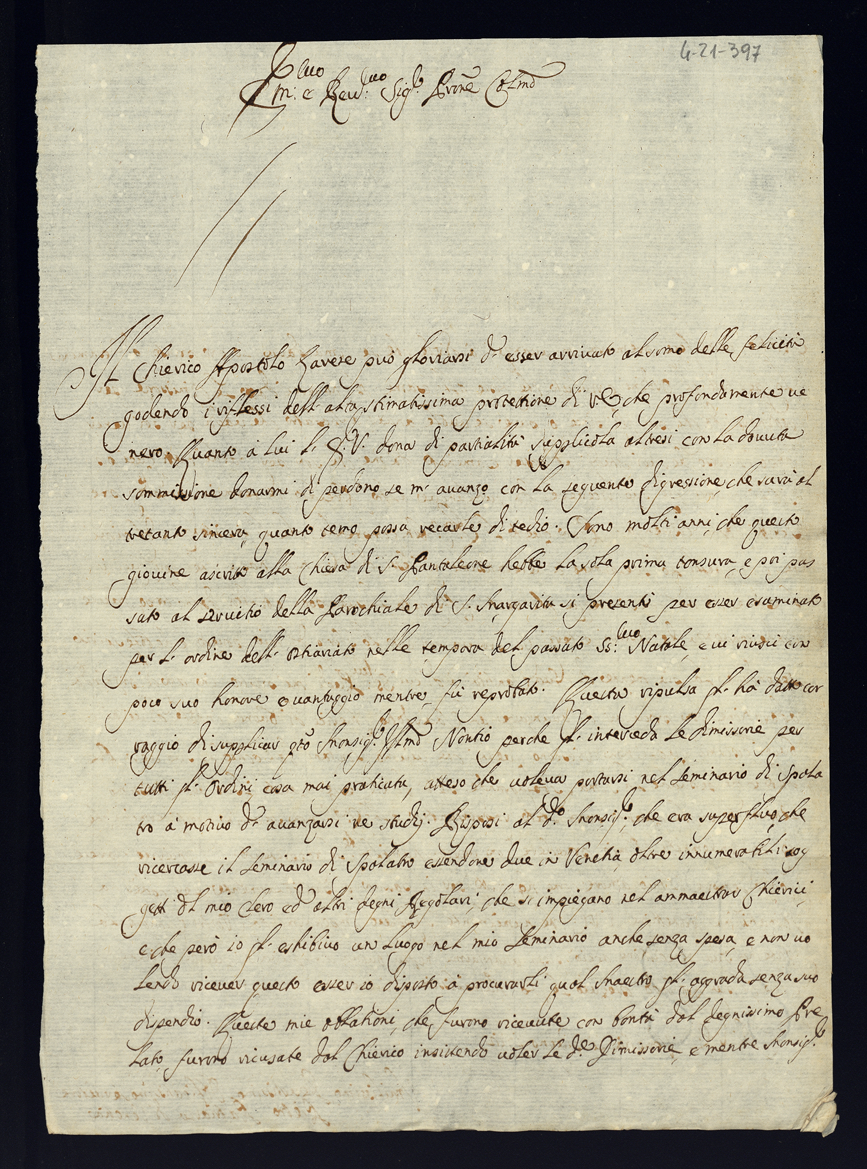 4-21-397
Ill:mo e Reu:mo Sig:r Prone Col:mo
Il Chierico Apostolo Zavere può gloriarsi d'esser arrivato al somo delle felicità
godendo i riflessi dell'alta stimatissima protettione di VS, che profondamente ve
nero. Quanto à lui l'S.V. dona di partialità supplicola altresì con la dovuta
sommissione donarmi di perdono se m'avanzo con la seguente digressione, che sarà al
tretanto sincera, quanto temo possa recarle di tedio. Sono molti anni, che questo
giovine ascritto alla Chiesa di S. Pantaleone hebbe la sola prima tonsura, e poi pas
sato al servitio della Parochiale di S. Margarita si presentò per esser esaminato
per l'ordine dell'ostiariato nelle tempora del passato SS:mo Natale, e vi riuscì con
poco suo honore e vantaggio mentre fù reprobato. Questa ripulsa gl'hà datto cor
raggio di supplicar Monsig:r Ill:mo Nontio perche gl'interceda le dimissorie per
tutti gl'Ordini cosa mai praticata, atteso che voleva portarsi nel Seminario di Spala
tro à motivo d'avanzarsi ne studij. Risposi al d:o Monsig:r, che era superfluo, che
ricercasse il Seminario di Spalatro essendone due in Venetia, oltre innumerabili sog
getti del mio Clero ed altri degni Regolari, che si impiegano nel ammaestrar Chierici,
e che però io gl'esibivo un luogo nel mio Seminario anche senza spesa, e non vo
lendo ricever questo esser io disposto à procurarli qual Maestro gl'aggrada senza suo
dispendio. Queste mie oblationi, che furono ricevute con bontà dal degnissimo Pre
lato, furono ricusate dal Chierico insistendo voler le d:e Dimissorie, e mentre Monsig:r